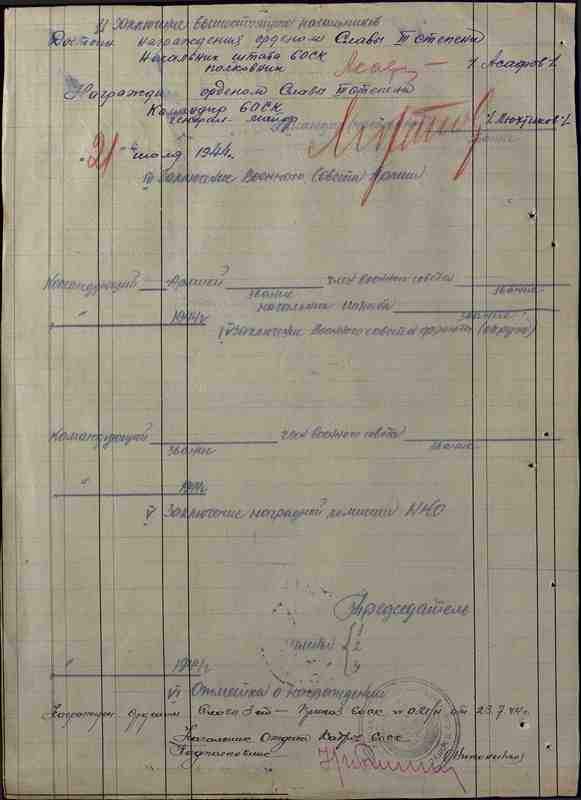 II Заключение вышестоящих начальников
Достоин награждения орденом Славы III степени
Начальник штаба 60СК
полковник /Асафов/
орденом Слава III степени
Командир 60СК
генерал майор /Люхтиков/
звание
"21" июля 1944г.
III Заключение Военного Совета Армии
Командующий Армией член военного совета
звание звание
начальник штаба
" 1944г звание
IV Заключение Военного совета фронта (округа)
Командующий член военного совета
звание звание
" 1944г
V Заключение наградной комиссии НКО
Председатель
члены 1
2
3
" 1944г
VI Отметка о награждении
Награжден орденом Славы 3 ст — Приказ 60ск от 23.7.44г.
Начальник Отдела Кадров 60ск
Подполковник